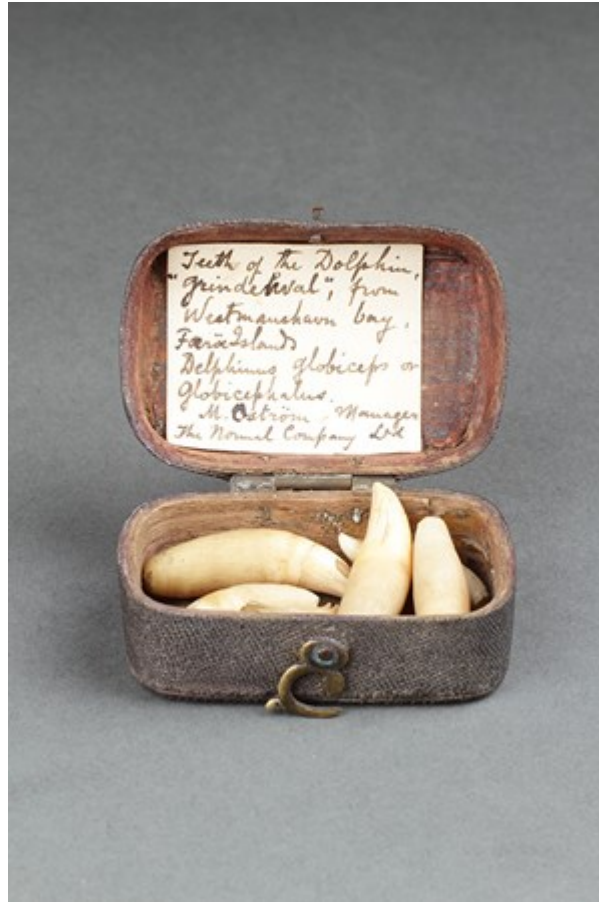 Teeth of the Dolphin,
"grindehval", from
Westmanshavn bay,
Færæ Islands
Delphinus globiceps or
Globicephalus.
M. Öström, Manager
The Normal Company Ltd